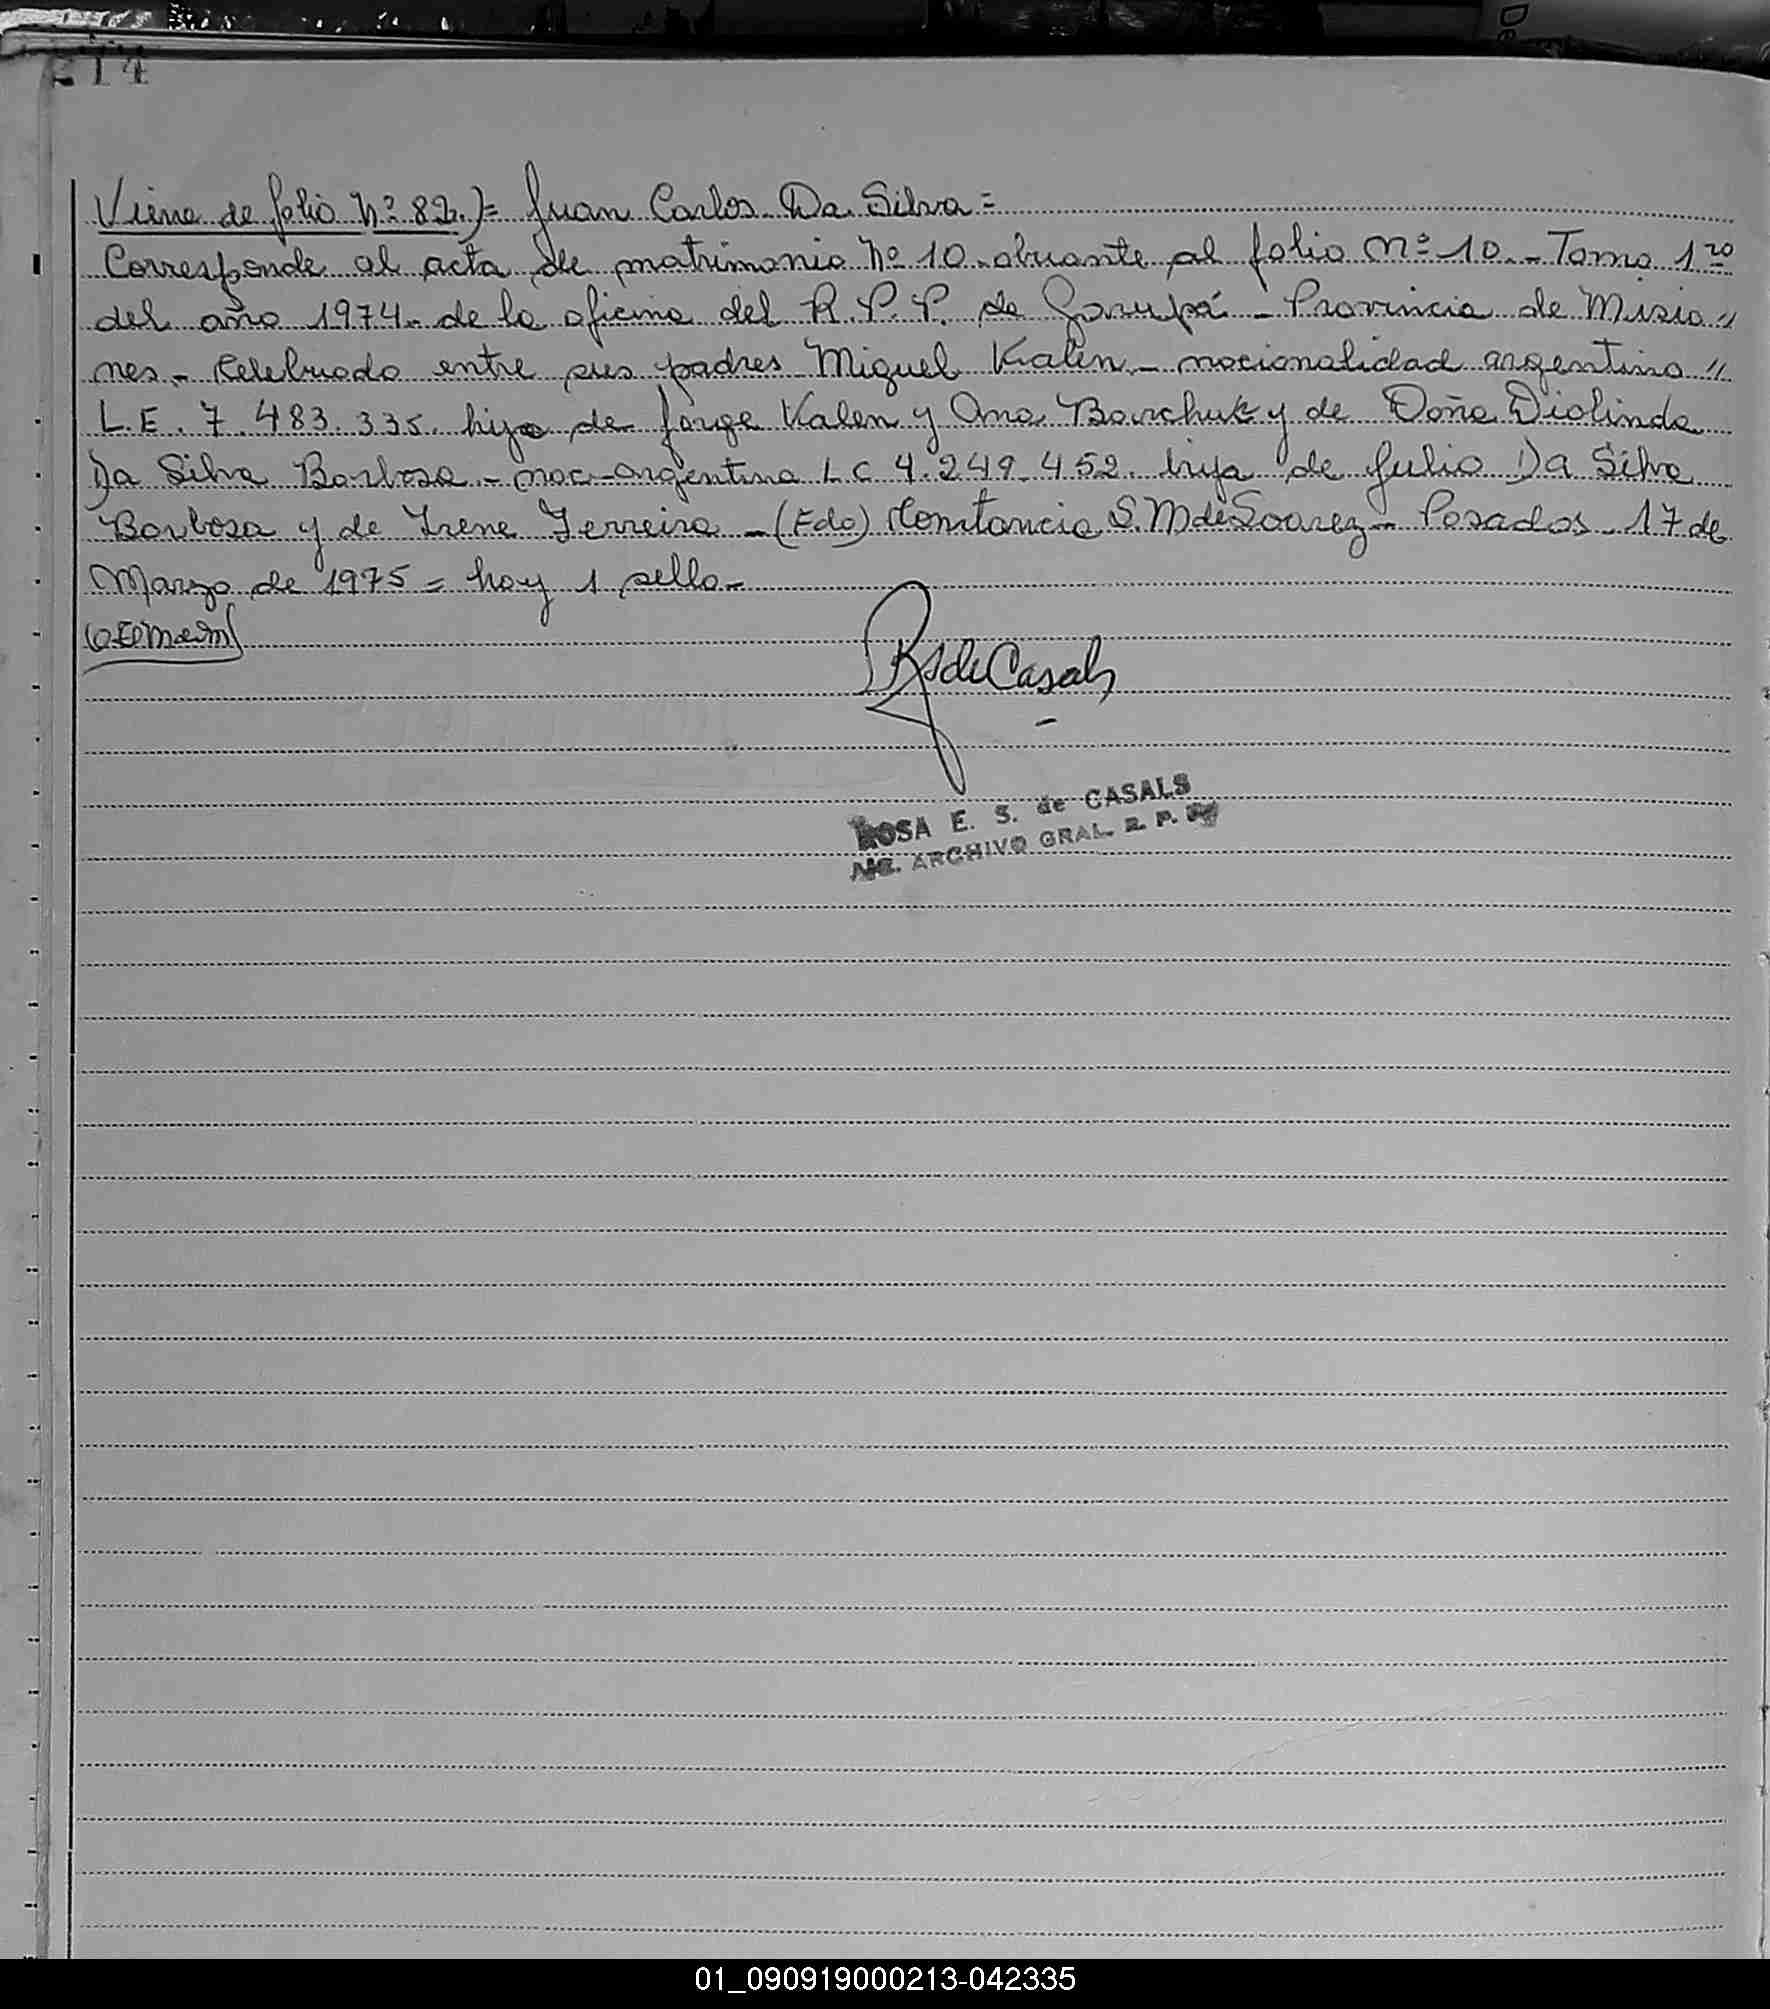 214
Viene de folio Nº 82.)= Juan Carlos Da Silva =
Corresponde al acta de matrimonio Nº 10 obrante al folio Nº 10 - Tomo 1ro
del año 1974 - de la oficina del R. P. P. de Garupá - Provincia de Misio "
nes - Celebrado entre sus padres Miguel Kalen - nacionalidad argentino "
L.E. 7.483.335. hijo de Jorge Kalen y Ana Barchuk y de Doña Diolinda
Da Silva Barbosa - nac-argentina L.C 4.249.452. hija de Julio Da Silva
Barbosa y de Irene Ferreira - (Fdo) Constancia S. M de Soarez - Posadas - 17 de
Marzo de 1975 = hay 1 sello -
RS de Casals
ROSA E. S. de CASALS
ARCHIVO GRAL. R. P.
01_090919000213-042335